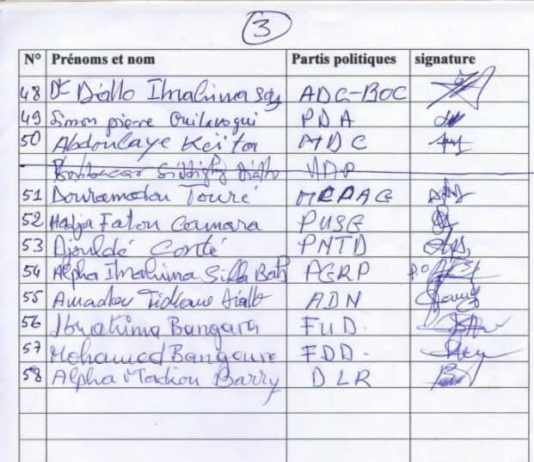 3
N° Prénoms et nom Partis politiques signature
48 Dr Diallo Ibrahima Sory ADC-BOC
49 Simon pierre Guilavogui PDA
50 Abdoulaye Keita MDC
51 Touré MEPAG
52 Hadja Fatou Camara PUSG
53 Djouldé Conté PNTD
54 Alpha Ibrahima Silla Bah PGRP
55 Amadou Tidiane Diallo ADN
56 Ibrahima Bangoura FUD.
57 Mohamed Bangoura FDD.
58 Alpha Barry DLR